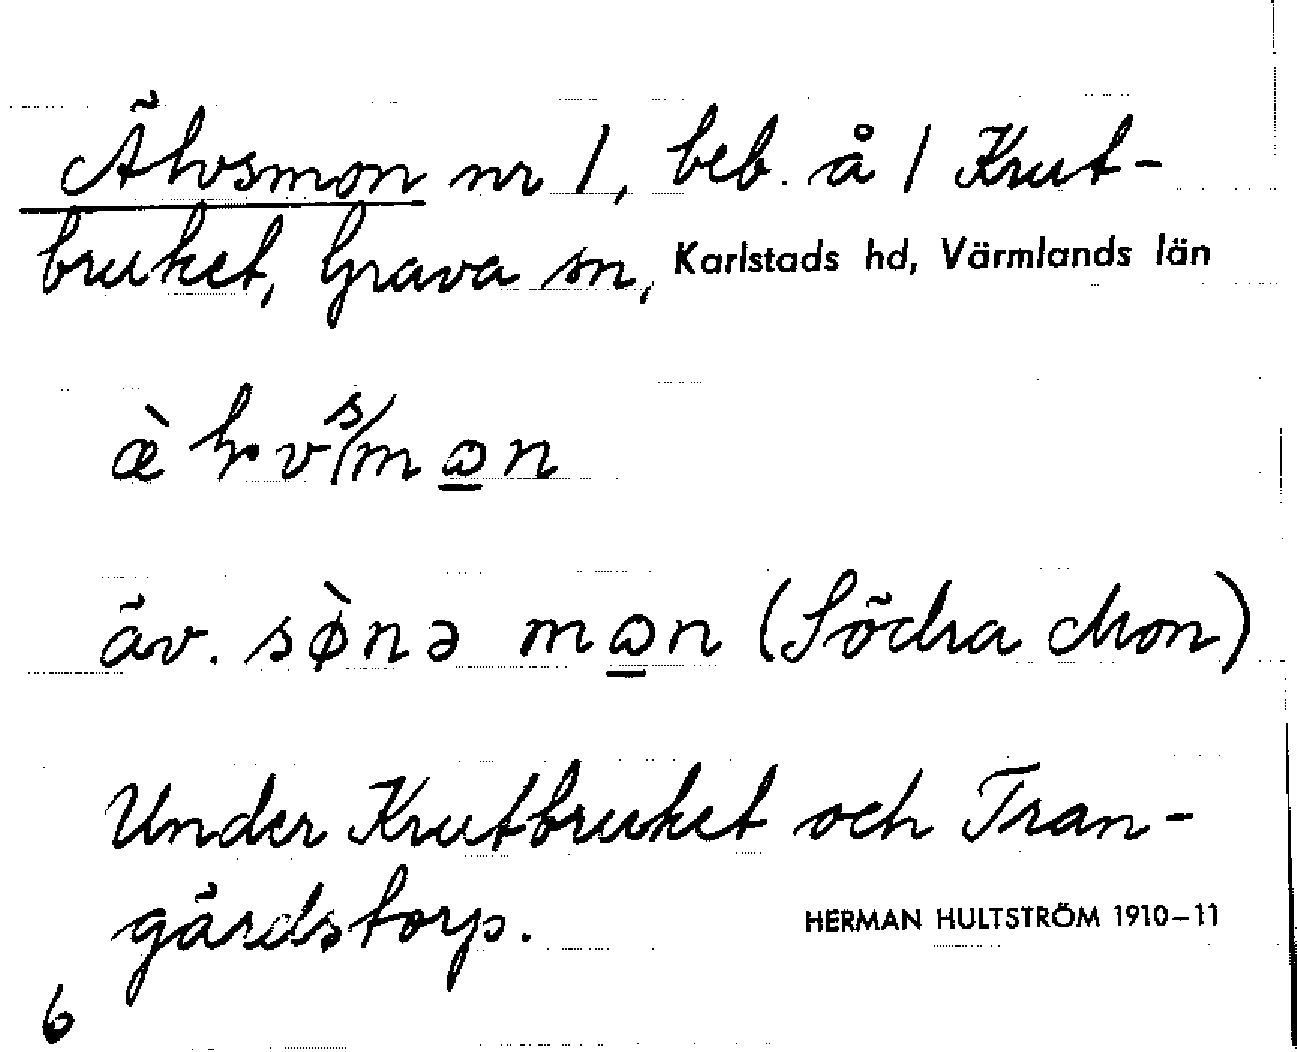 Älvsmon nr 1, beb. å 1 Krut-
bruket, Grava sn, Karlstads hd, Värmlands län
(Södra Mon)
Under Krutbruket och Tran-
gärdstorp.
HERMAN HULTSTRÖM 1910–11
6